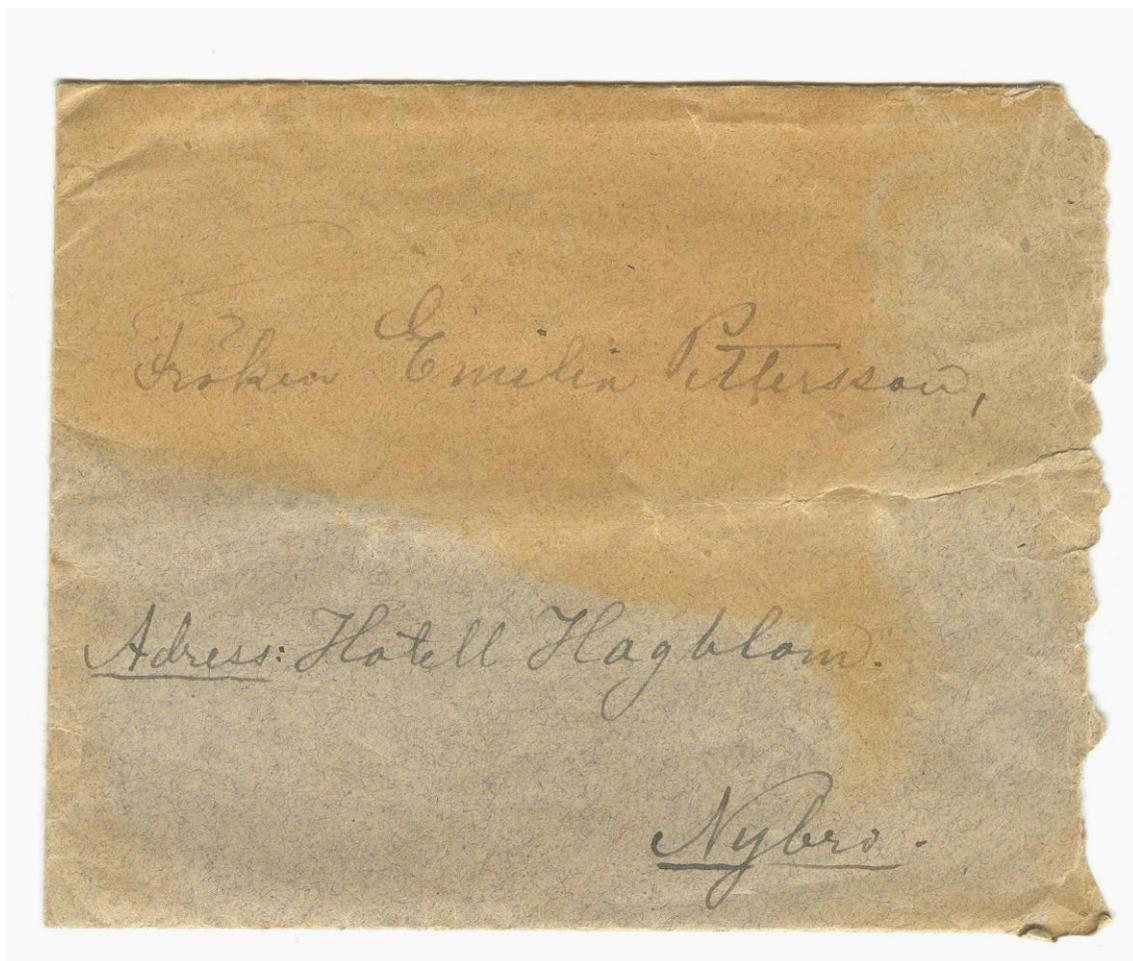 Fröken Emilia Pettersson,
Adress: Hotell Hagblom.
Nybro.